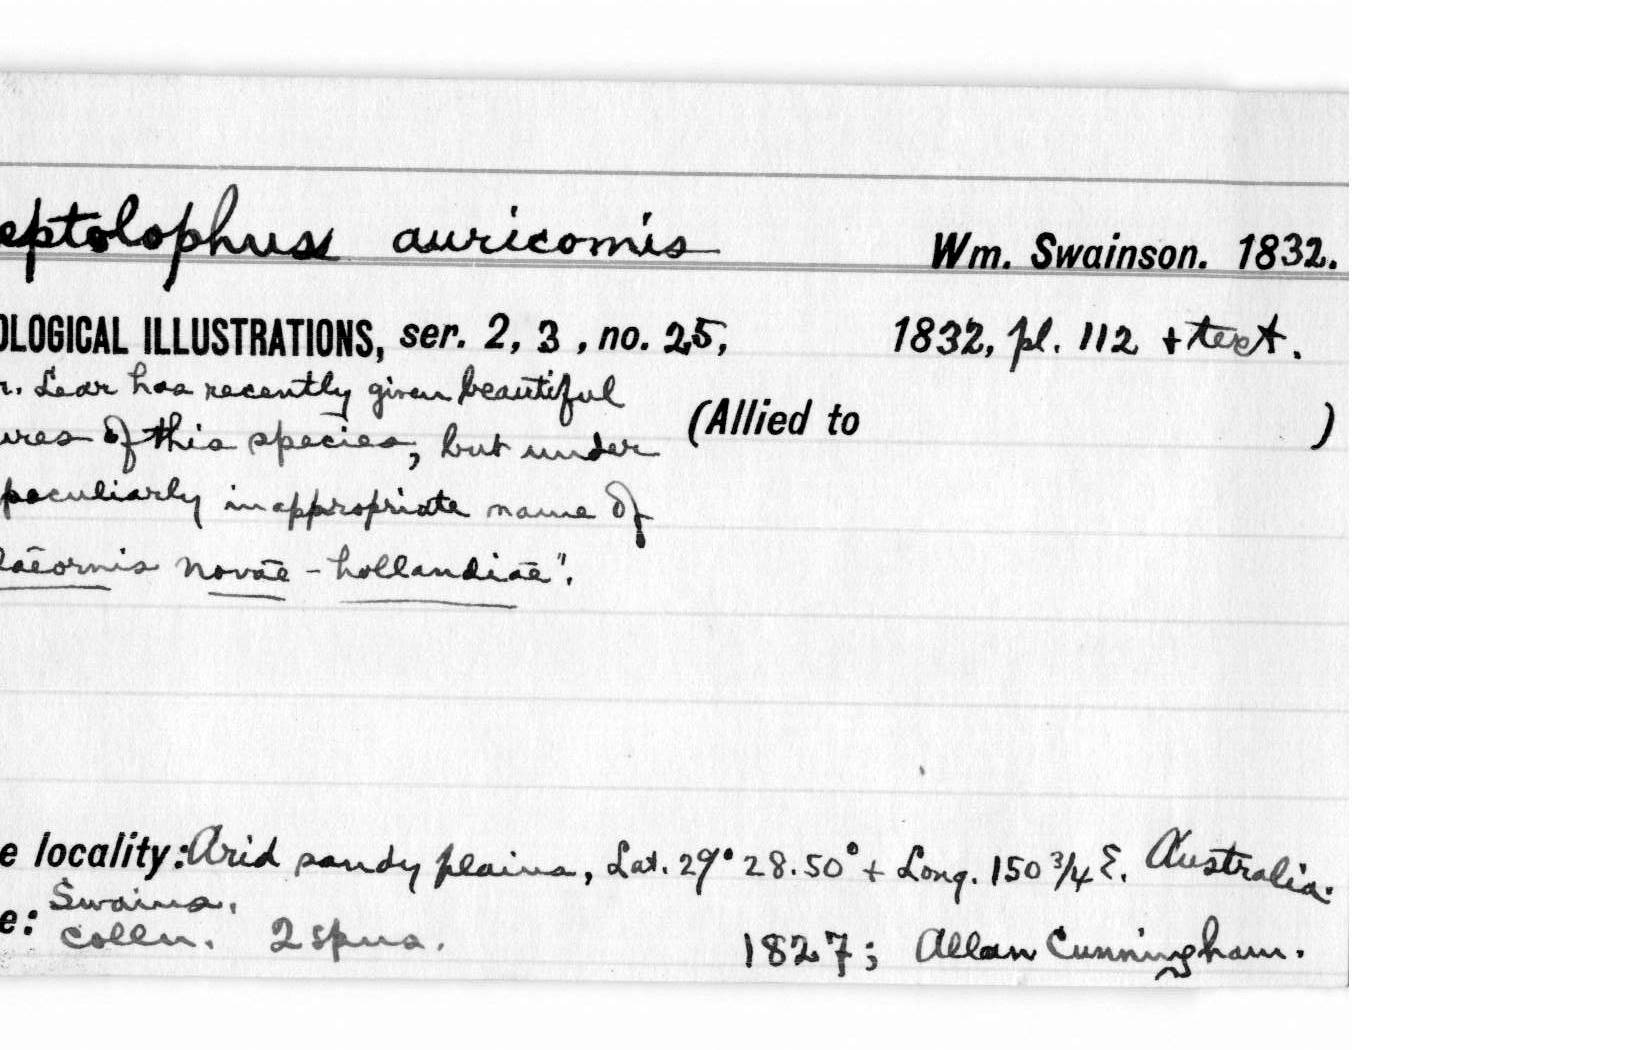 eptolophus auricomis Wm. Swainson. 1832.
OLOGICAL ILLUSTRATIONS, ser. 2, 3, no. 25, 1832, pl. 112 + text.
r. Lear has recently given beautiful
ures of this species, but under (Allied to )
peculiarly inappropriate name of
laeornis novae-hollandiae".
e locality: Arid sandy plains, Lat. 29° 28.50° + Long. 150 3/4 E. Australia.
Swains.
e: colln. 2 spns. 1827; Allan Cunningham.